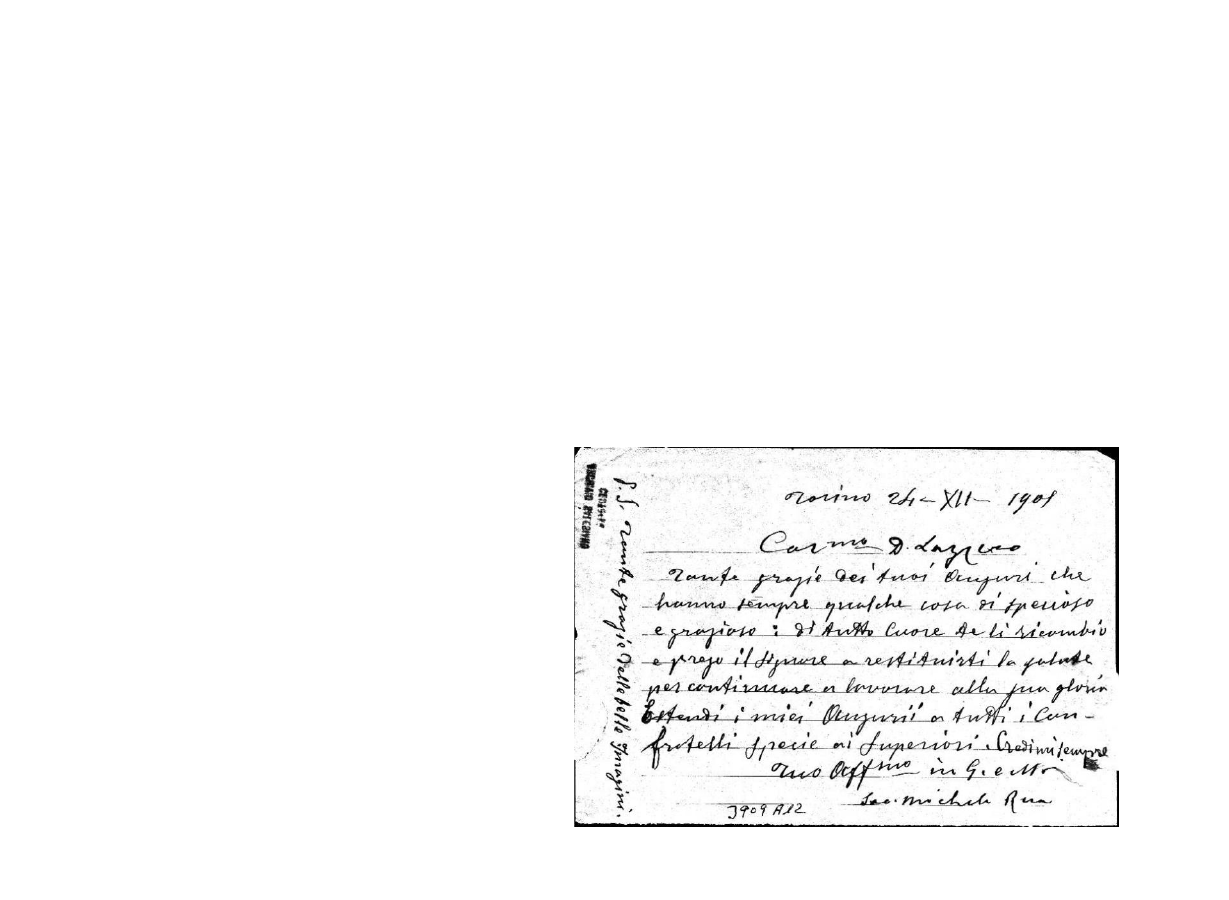 Torino 24-XII-1901
Car.mo D. Lazzero
Tante grazie dei tuoi Auguri che
hanno sempre qualche cosa di specioso
e grazioso: di tutto Cuore te li ricambio
e prego il Signore a restituirti la salute
per continuare a lavorare alla sua gloria
Estendi i miei Augurii a tutti i Con-
fratelli specie ai Superiori. Credimi sempre
Tuo Aff.mo in G. e M.
Sac. Michele Rua
3909 A12
P.S. Tante grazie delle belle Imagini.